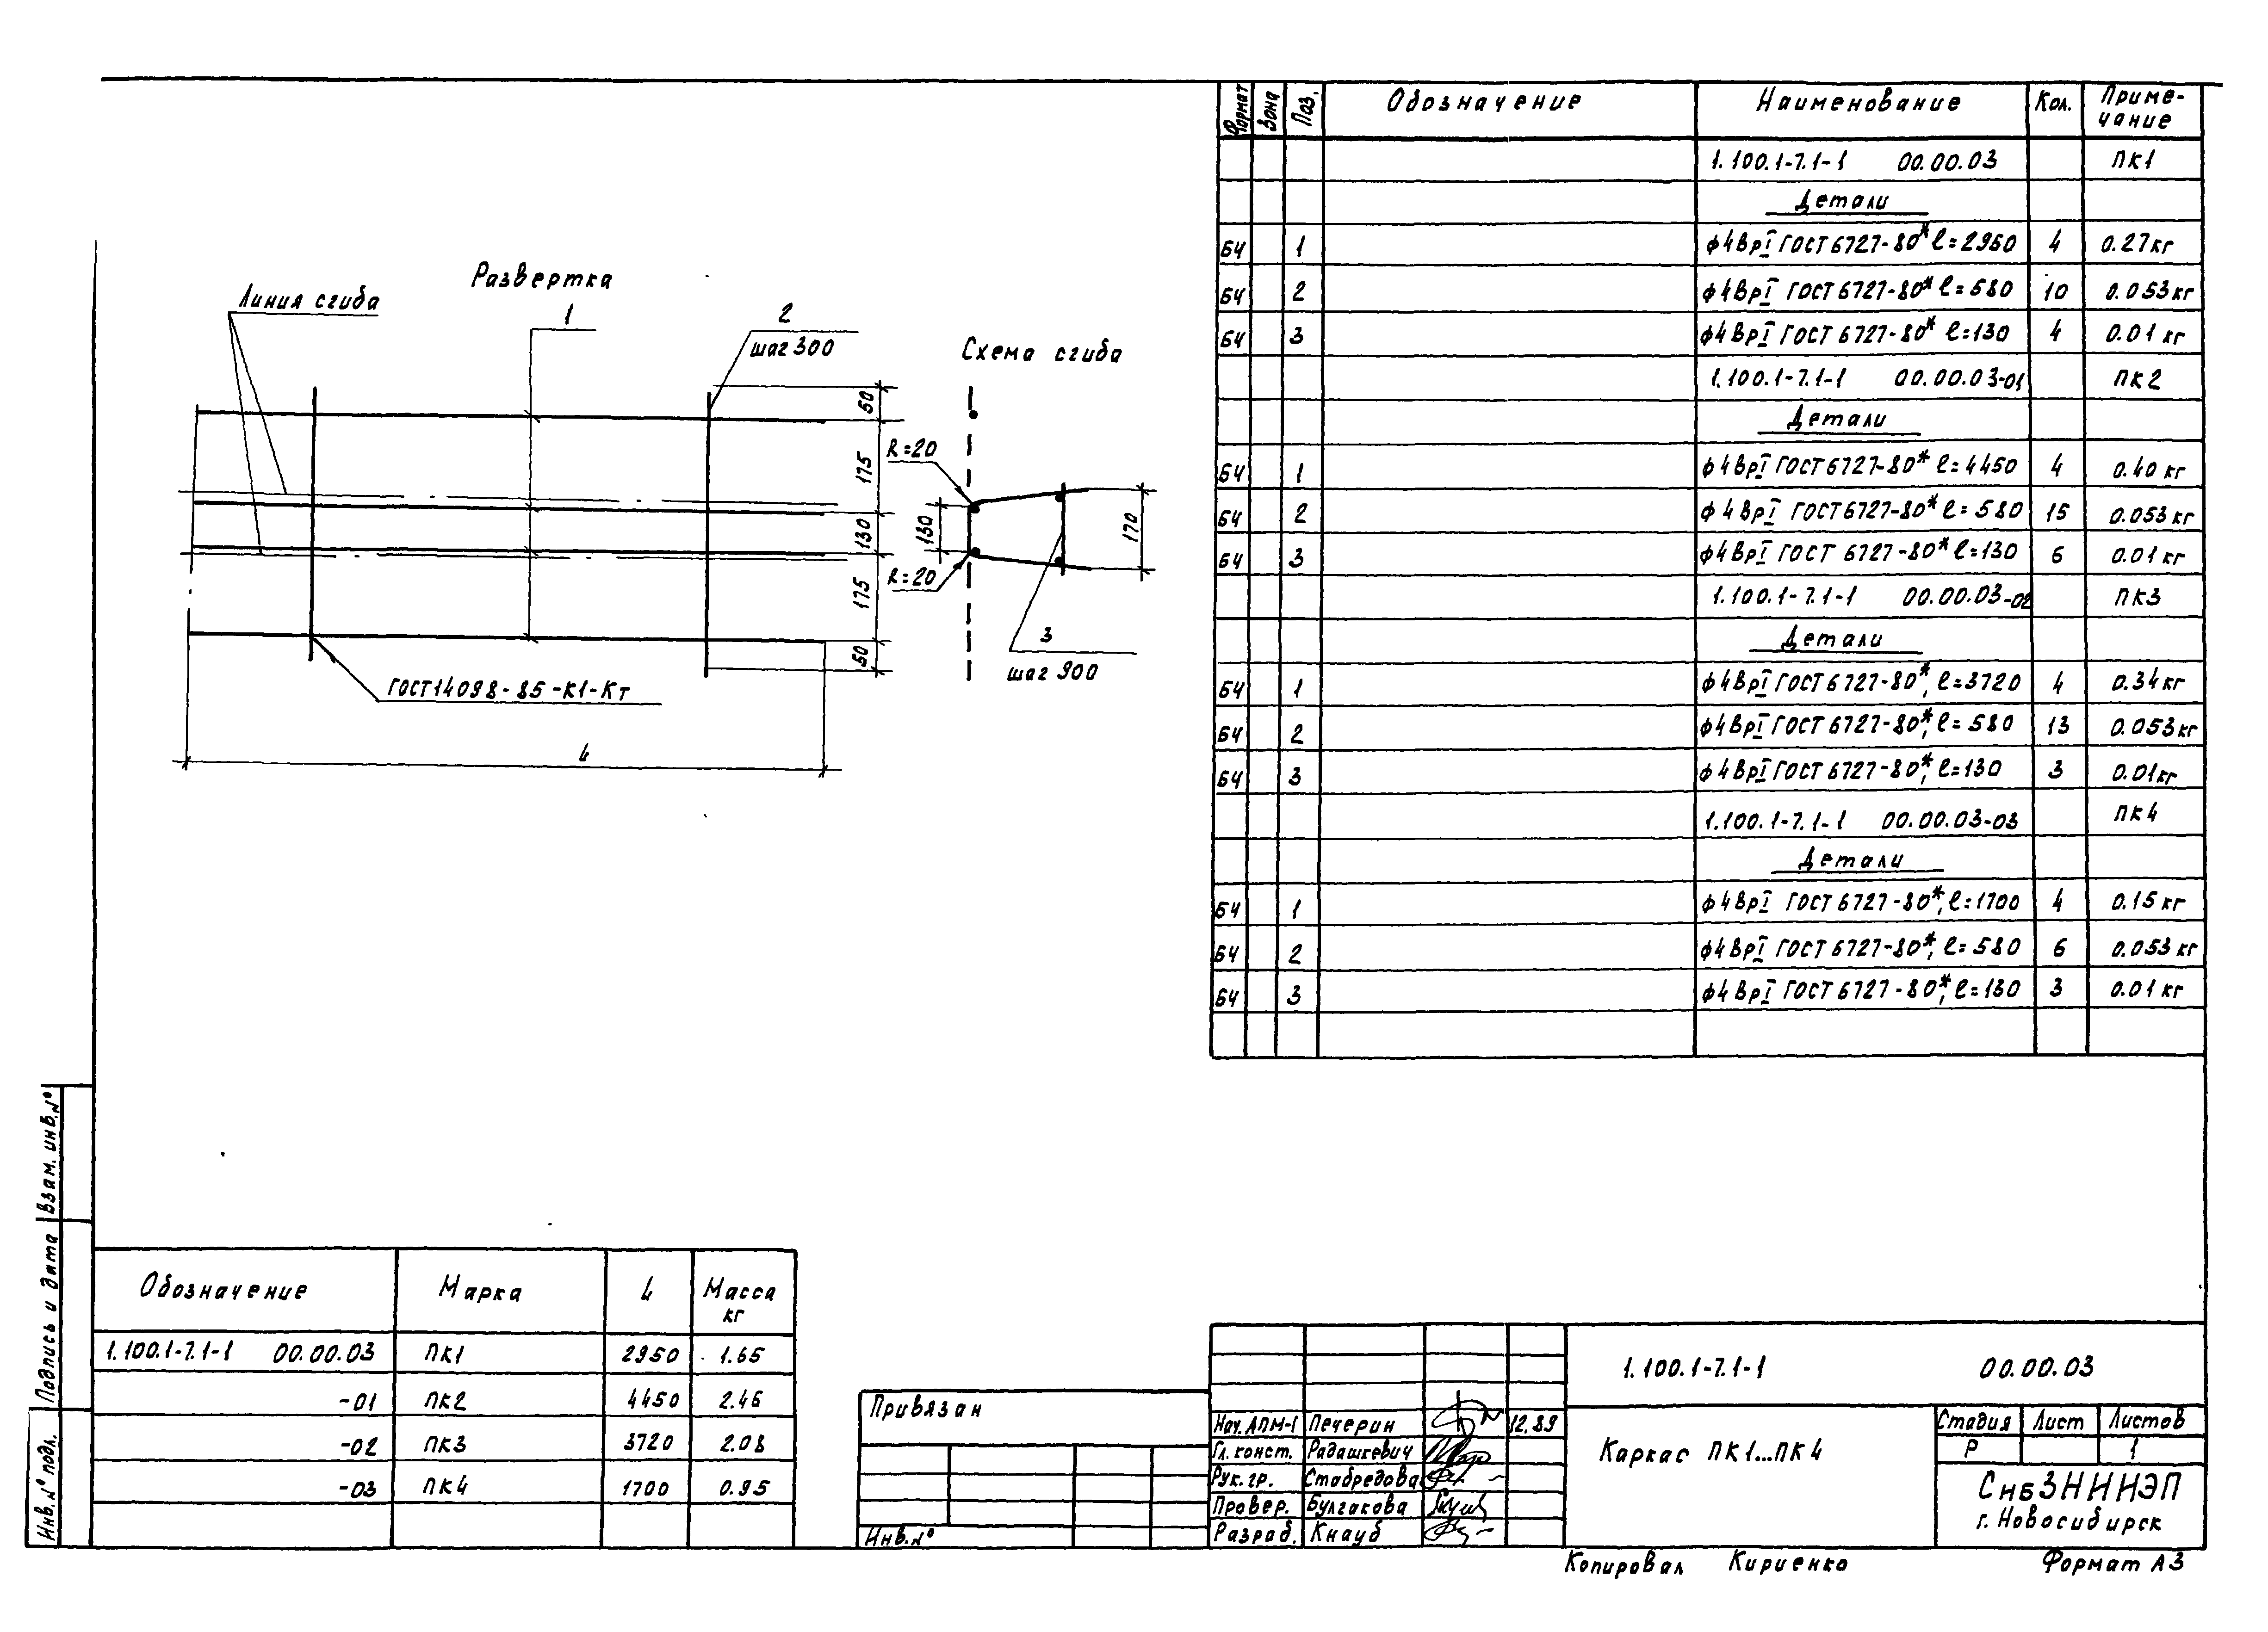 Развертка
Линия сгиба
1
2
шаг 300
Схема сгиба
50
175
130
175
50
R=20
130
R=20
170
3
шаг 900
ГОСТ 14098-85-К1-Кт
L
Формат Зона Поз. Обозначение Наименование Кол. Приме-
чание
1.100.1-7.1-1 00.00.03 ПК1
Детали
БЧ 1 ф4ВрI ГОСТ 6727-80* ℓ=2950 4 0.27кг
БЧ 2 ф4ВрI ГОСТ 6727-80* ℓ=580 10 0.053кг
БЧ 3 ф4ВрI ГОСТ 6727-80* ℓ=130 4 0.01 кг
1.100.1-7.1-1 00.00.03-01 ПК2
Детали
БЧ 1 ф4ВрI ГОСТ 6727-80* ℓ=4450 4 0.40 кг
БЧ 2 ф4ВрI ГОСТ 6727-80* ℓ=580 15 0.053 кг
БЧ 3 ф4ВрI ГОСТ 6727-80* ℓ=130 6 0.01 кг
1.100.1-7.1-1 00.00.03-02 ПК3
Детали
БЧ 1 ф4ВрI ГОСТ 6727-80*, ℓ=3720 4 0.34 кг
БЧ 2 ф4ВрI ГОСТ 6727-80*, ℓ=580 13 0.053кг
БЧ 3 ф4ВрI ГОСТ 6727-80*, ℓ=130 3 0.01кг
1.100.1-7.1-1 00.00.03-03 ПК4
Детали
БЧ 1 ф4ВрI ГОСТ 6727-80*, ℓ=1700 4 0.15 кг
БЧ 2 ф4ВрI ГОСТ 6727-80*, ℓ=580 6 0.053 кг
БЧ 3 ф4ВрI ГОСТ 6727-80*, ℓ=130 3 0.01 кг
Взам. инв. №
Подпись и дата
Инв. № подл.
Обозначение Марка L Масса
кг
1.100.1-7.1-1 00.00.03 ПК1 2950 1.65
-01 ПК2 4450 2.46
-02 ПК3 3720 2.08
-03 ПК4 1700 0.95
Привязан
Инв. №
Нач. АПМ-1 Печерин 12.89
Гл. конст. Радашкевич
Рук. гр. Стабредова
Провер. Булгакова
Разраб. Кнауб
1.100.1-7.1-1 00.00.03
Каркас ПК1...ПК4
Стадия Лист Листов
Р 1
СибЗНИИЭП
г. Новосибирск
Копировал Кириенко Формат А3